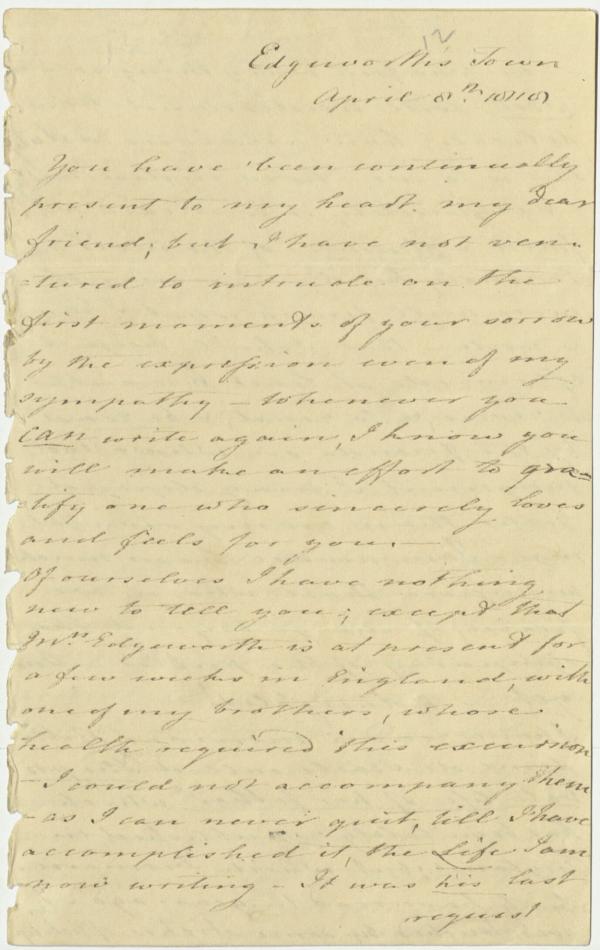 12
Edgeworth's Town
April 8th. 1818
You have been continually
present to my heart. my dear
friend; but I have not ven-
-tured to intrude on the
first moments of your sorrow
by the expression even of my
sympathy – whenever you
can write again, I know you
will make an effort to gra-
-tify one who sincerely loves
and feels for you. –
Of ourselves I have nothing
new to tell you; except that
Mrs. Edgeworth is at present for
a few weeks in England, with
one of my brothers, whose
health required this excursion
– I could not accompany them
– as I can never quit, till I have
accomplished it, the Life I am
now writing – It was his last
request